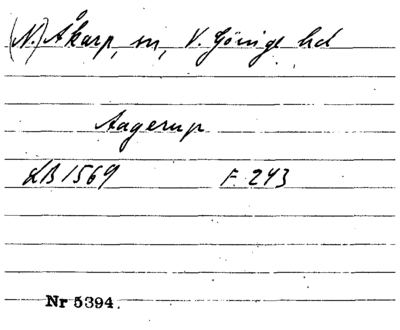 (N.) Åkarp, sn, V. Göinge hd
Aagerup
LB 1569 F. 243
Nr 5394.